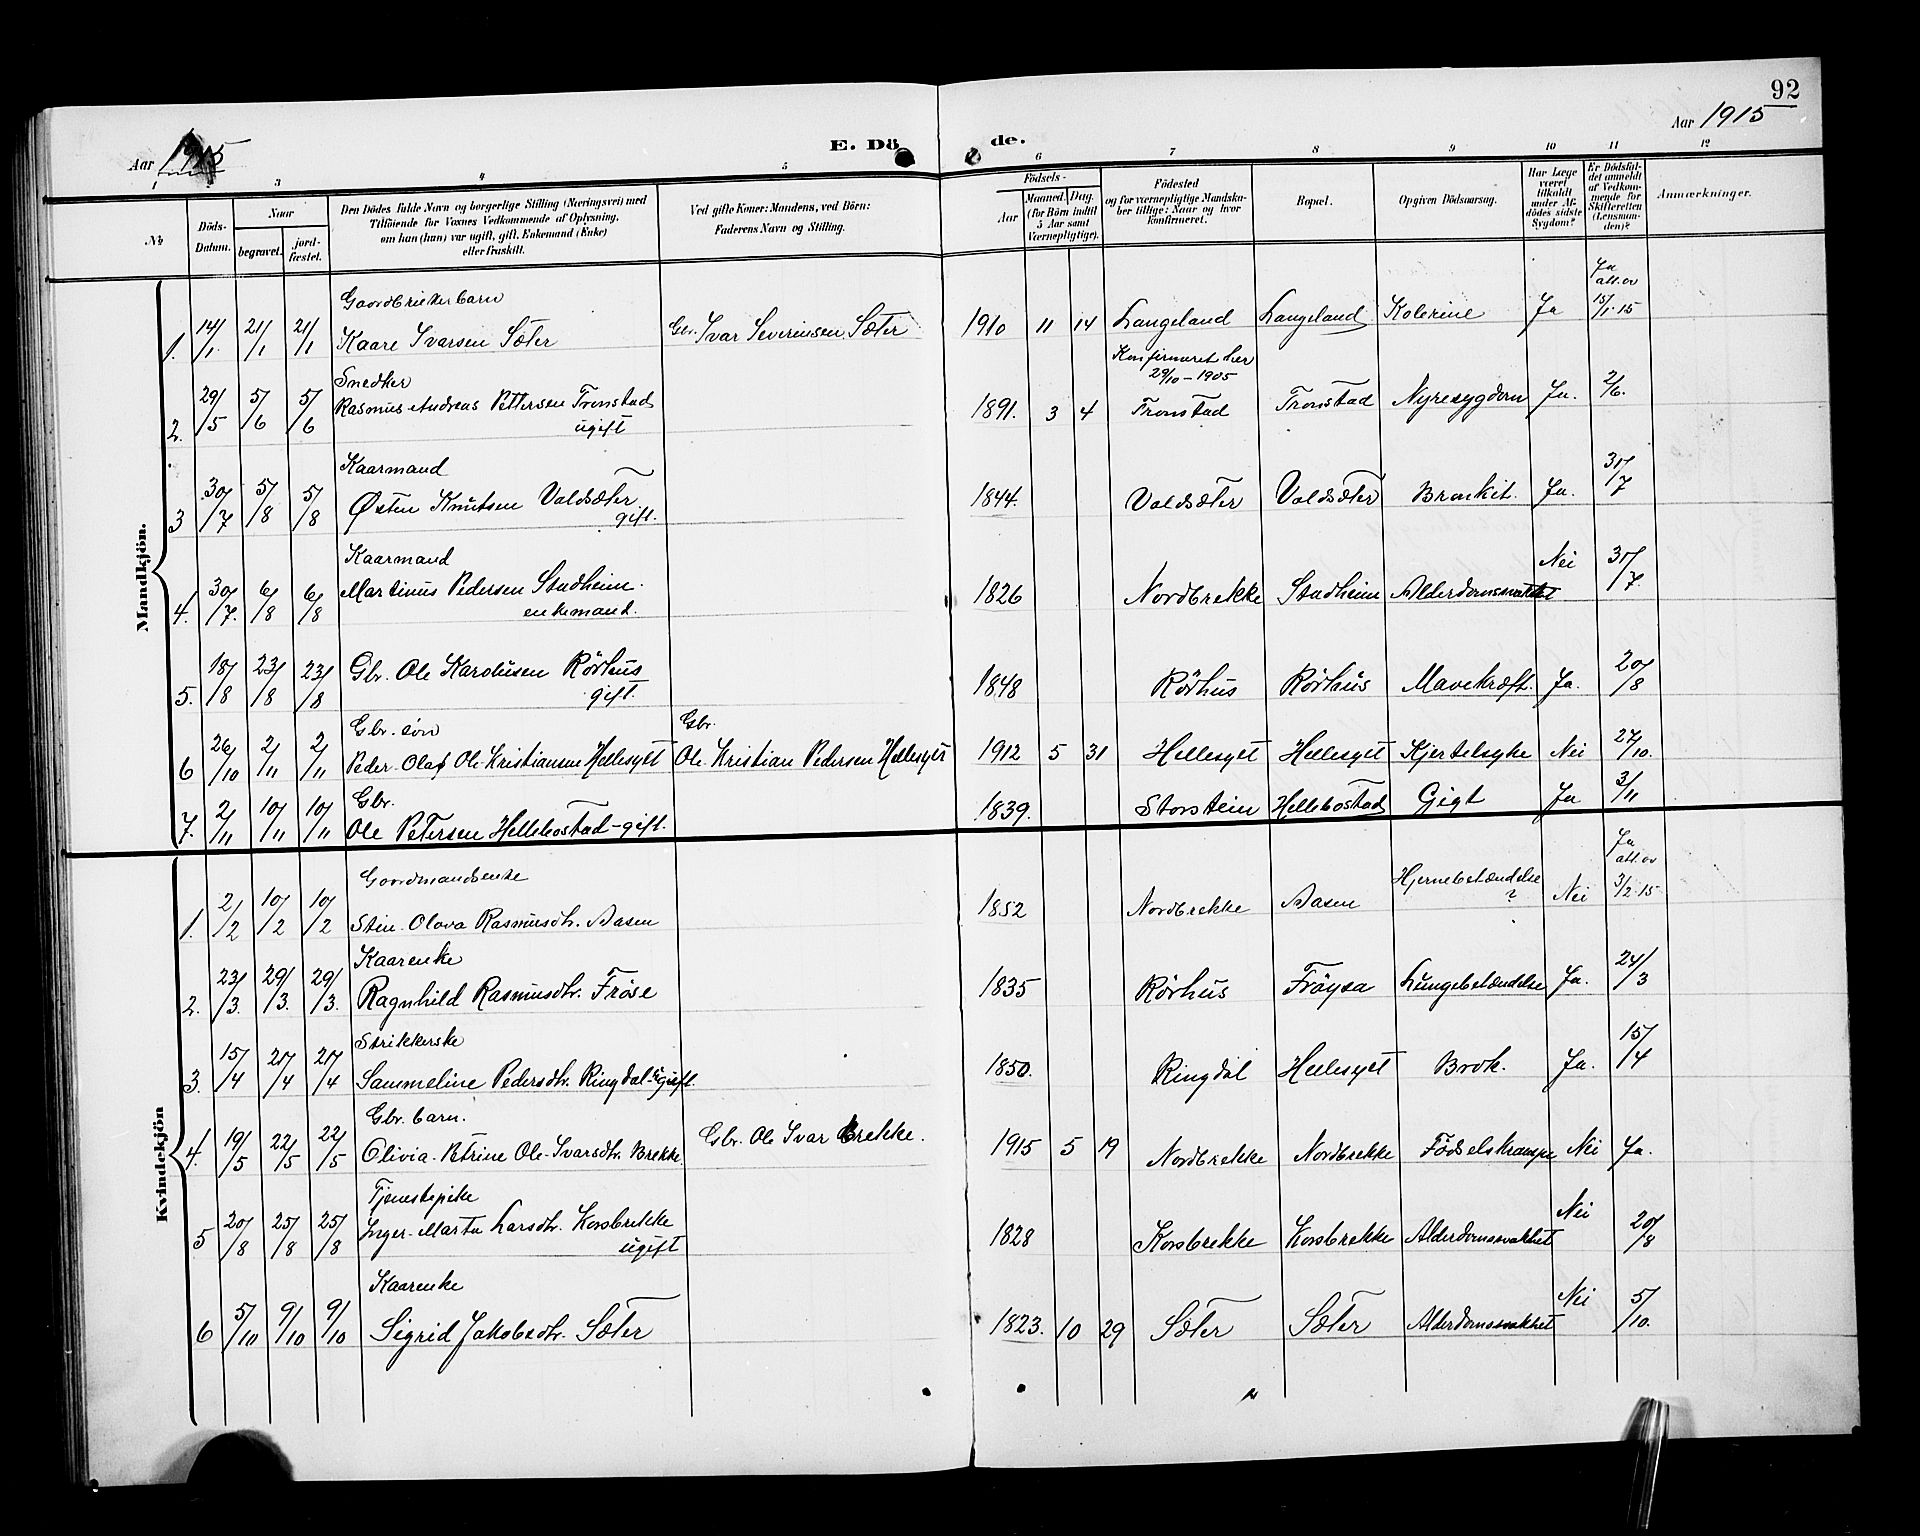 92
Aar 1915
E. Döde.
Aar 1915
1 3 4 5 6 7 8 9 10 11 12
No
Döds-Datum.
Naar
begravet.
jord-fæstet.
Den Dödes fulde Navn og borgerlige Stilling (Næringsvei) med
Tilföiende for Voxnes Vedkommende af Oplysning,
om han (hun) var ugift, gift, Enkemand (Enke)
eller fraskilt.
Ved gifte Koner: Mandens, ved Börn:
Faderens Navn og Stilling.
Födsels-
Aar
Maaned. Dag.
(for Börn indtil
5 Aar samt
Værnepligtige).
Födested
og for værnepligtige Mandska-
ber tillige: Naar og hvor
konfirmeret.
Bopæl.
Opgiven Dödsaarsag.
Har Læge
været
tilkaldt
under Af-
dödes sidste
Sygdom?
Er Dödsfal-
det anmeldt
af Vedkom-
mende for
Skifteretten
(Lensman-
den)?
Anmærkninger.
Mandkjön.
Gaardbrukerbarn
1. 14/1 21/1 21/1 Kaare Ivarsen Sæter Gbr. Ivar Severinsen Sæter 1910 11 14 Langeland Langeland Kolerine Ja Ja att. av 15/1-15
Snedker Konfirmeret her 29/10-1905
2. 29/5 5/6 5/6 Rasmus Andreas Pettersen Tronstad 1891. 3 4 Tronstad Tronstad Nyresygdom Ja. 2/6.
ugift
Kaarmand
3 30/7 5/8 5/8 Østen Knutsen Valdsæter 1844. Valdsæter Valdsæter Bronkit. Ja. 31/7
gift.
Kaarmand
4. 30/7. 6/8 6/8 Martinus Pedersen Stadheim. 1826 Nordbrekke Stadheim Alderdomssvakhet Nei 31/7.
enkemand.
5. 18/8 23/8 23/8 Gbr. Ole Karolusen Rörhus 1848 Rörhus Rörhus Mavekræft. Ja. 20/8
gift.
Gbr. søn Gbr.
6 26/10 2/11 2/11 Peder-Olaf Ole-Kristiansen Hellesylt Ole-Kristian Pedersen Hellesylt 1912 5 31 Hellesylt Hellesylt Kjertelsyke Nei 27/10.
Gbr.
7. 2/11 10/11 10/11 Ole Petersen Hellebostad-gift. 1839. Storstein Hellebostad Gigt Ja 3/11
Kvindekjön
Gaardmandsenke
1. 2/2 10/2 10/2 Stin-Olova Rasmusdtr. Aasen 1852 Nordbrekke Aasen Hjernebetændelse ? Nei Ja att. av 3/2-15
Kaarenke
2. 23/3. 29/3. 29/3. Ragnhild Rasmusdtr. Fröse 1835 Rörhus Fröysa Lungebetændelse Ja. 24/3
Strikkerske
3. 15/4 21/4 21/4 Sammeline Pedersdtr. Ringdal-ugift. 1850. Ringdal Hellesylt Brok. Ja. 15/4
Gbr. barn.
4. 19/5 22/5 22/5 Olivia-Petrine Ole-Ivarsdtr. Brekke. Gbr. Ole Ivar Brekke. 1915 5 19 Nordbrekke Nordbrekke Födselskrampe Nei Ja.
Tjenestepike
5 20/8 25/8 25/8 Inger-Marta Larsdtr. Korsbrekke 1828 Korsbrekke Korsbrekke Alderdomssvakhet Nei 20/8
ugift
Kaarenke
6 5/10 9/10 9/10 Sigrid Jakobsdtr. Sæter 1823. 10 29 Sæter Sæter Alderdomssvakhet Nei 5/10.